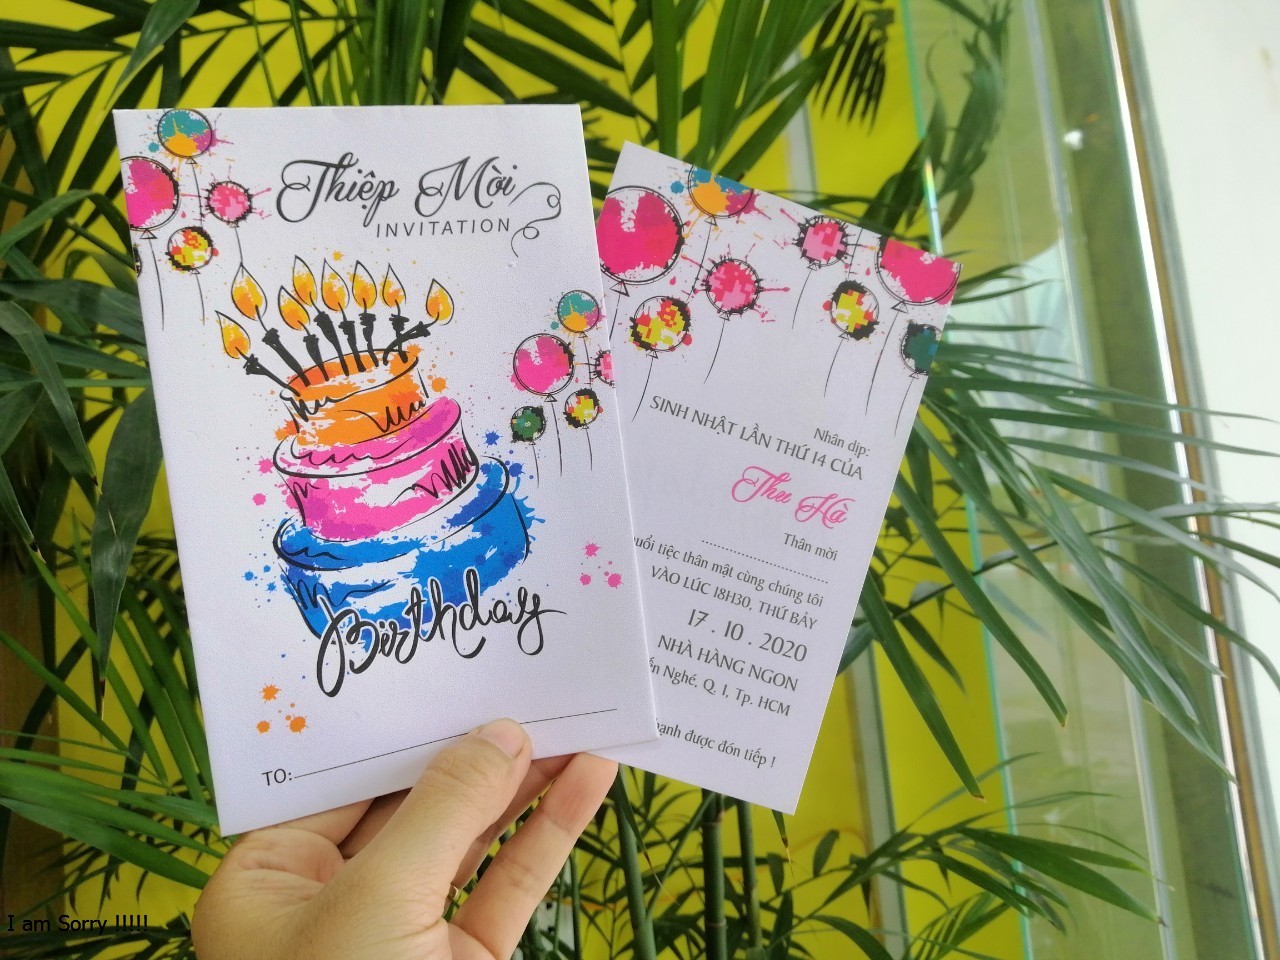 Thiệp Mời
INVITATION
Birthday
TO:
Nhân dịp:
SINH NHẬT LẦN THỨ 14 CỦA
Thu Hà
Thân mời
tiệc thân mật cùng chúng tôi
VÀO LÚC 18H30, THỨ BẢY
17 . 10 . 2020
NHÀ HÀNG NGON
Nghé, Q. 1, Tp. HCM
được đón tiếp !
I am Sorry !!!!!